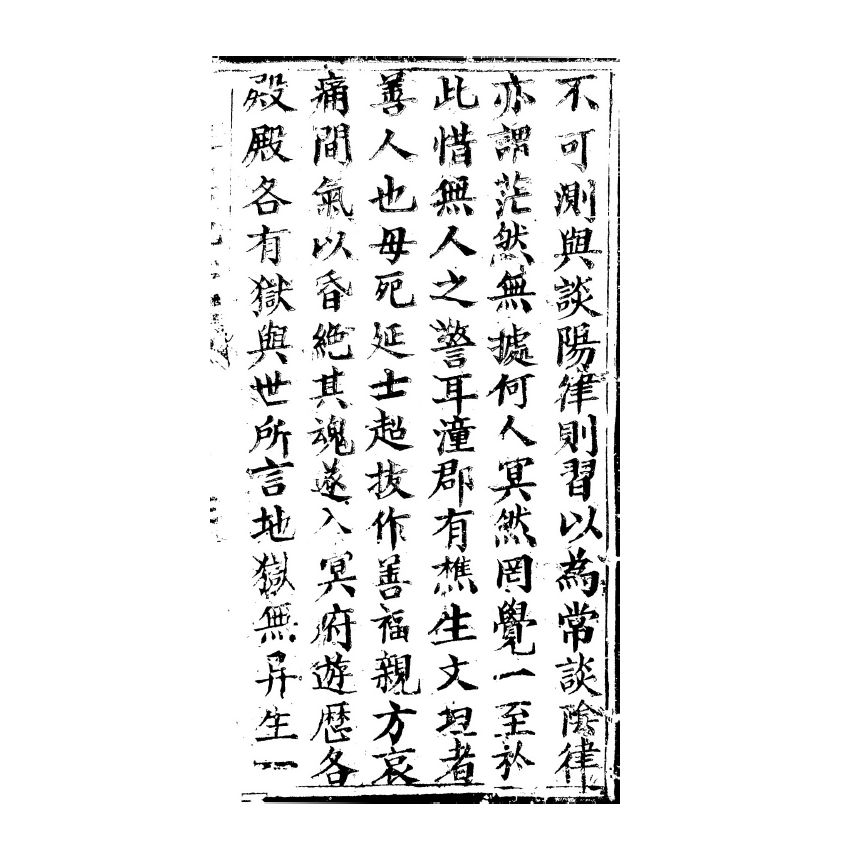 不可測與談陽律則習以為常談陰律
亦謂茫然無據何人冥然罔覺一至於
此惜無人之警耳潼郡有樵生文坦者
善人也母死延士超抜作善福親方哀
痛間氣以昏絶其魂遂入冥府遊歴各
殿殿各有獄與世所言地獄無异生一